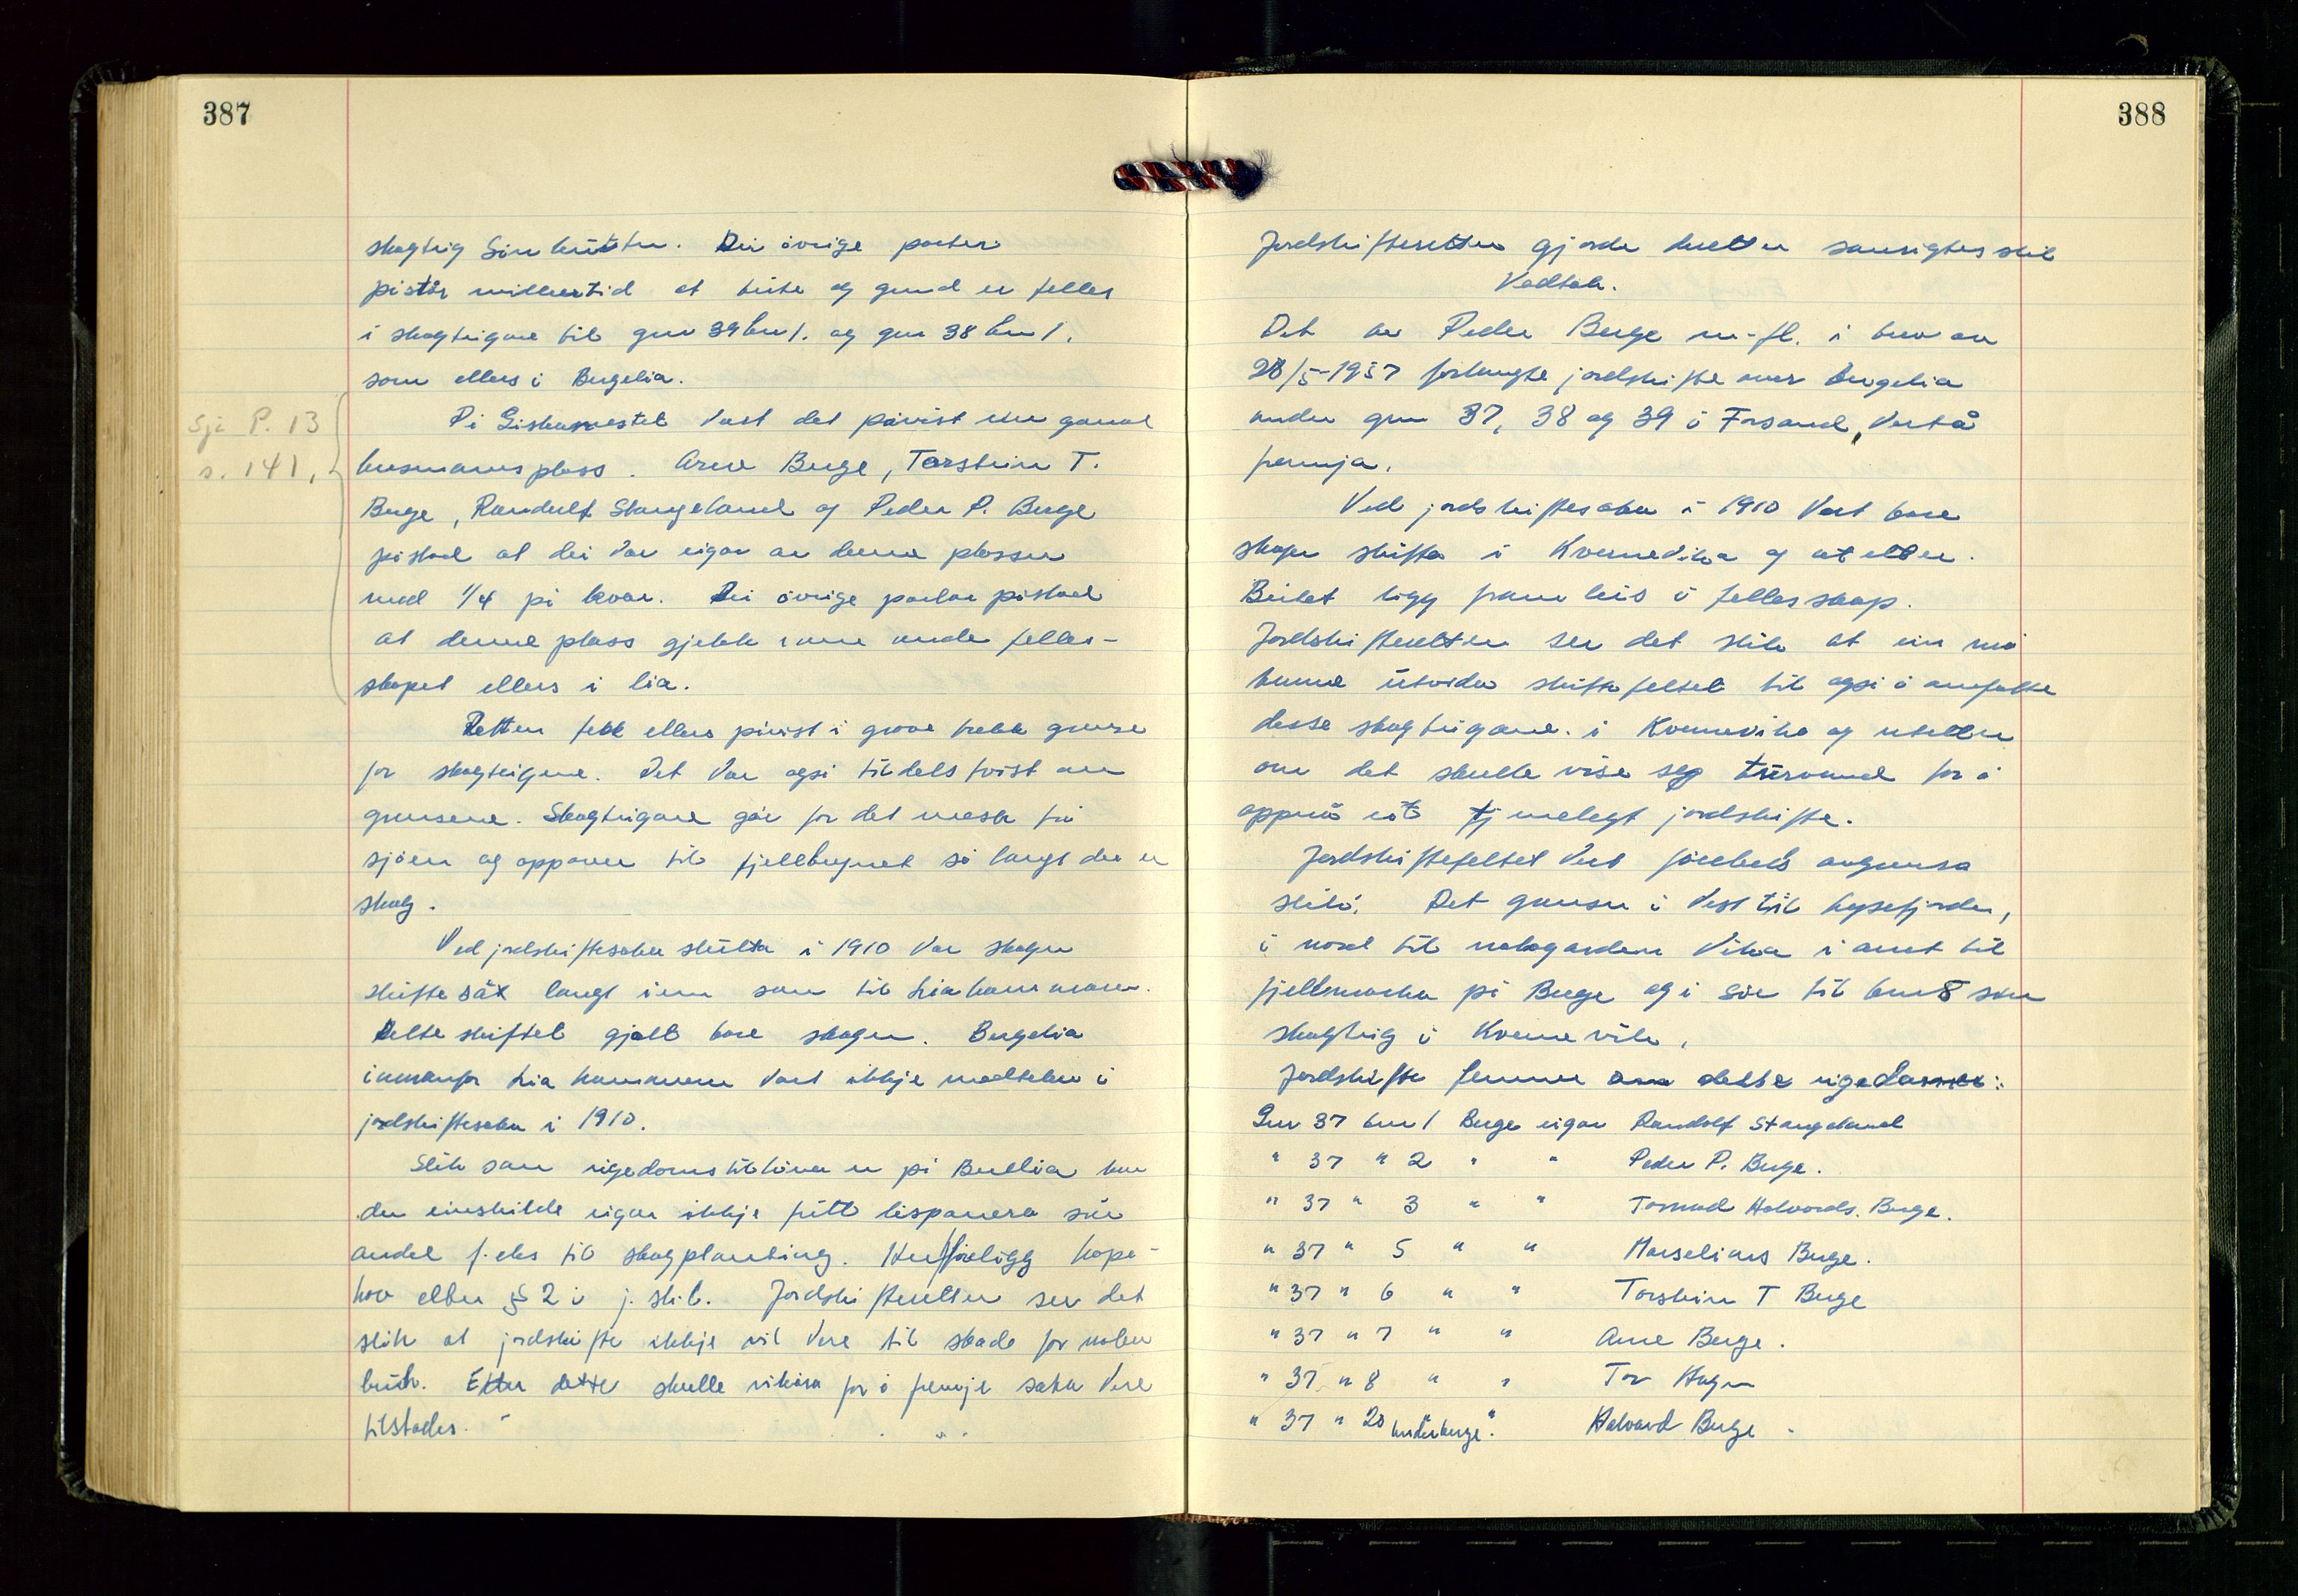 387
skogteig Sin beiterett. Dei övrige parter
påstår imidlertid at beite og grund er felles
i skogteigane til gnr 39 bnr 1. og gnr 38 bnr 1.
som ellers i Bergelia.
Sjå P. 13
s. 141.
På vart det påvist ein gamal
husmannsplass. Arne Berge, Torstein T.
Berge, Randulf Stangeland og Peder P. Berge
påstod at dei var eigar av denne plassen
med 1/4 på kvar. Dei övrige partar påstod
at denne plass gjekk inn under felles-
skapet ellers i lia.
Retten fekk ellers påvist i grove trekk grense
for skogteigene. Det var også tildels tvist om
grensene. Skogteigane går for det meste frå
sjöen og oppover til fjell så langt der er
skog.
Ved jordskiftesaka slutta i 1910 var skogen
skifta så langt inn som til Liahammaren.
Dette skiftet gjalt bare skogen. Bergelia
innanfor Liahammaren vart ikkje medteken i
jordskiftesaka i 1910.
Slik som eigedomstilhöva er på Berelia kan
den einskilde eigar ikkje fritt disponera sin
andel f.eks til skogplanting. Her föreligg høpe-
hov etter § 2 i j.sk.l. Jordskifteretten ser det
slik at jordskifte ikkje vil vere til skade for noken
bruk. Etter dette skulle vilkåra for å fremje saka vere
tilstades.
388
Jordskifteretten gjorde deretter samrøystes slik
Vedtak.
Det av Peder Berge m.fl. i brev av
28/5-1957 forlangte jordskifte over Bergelia
under gnr 37, 38 og 39 i Forsand, vert å
fremja.
Ved jordskiftesaka i 1910 vart bare
skogen skifta i Kvernevika og utetter.
Beitet ligg framleis i fellesskap.
Jordskifteretten ser det slik at ein må
kunne utvida skiftefeltet til også å omfatte
desse skogteigane i Kvernevika og utetter
om det skulle vise seg turvande for å
oppnå eit tjenelegt jordskifte.
Jordskiftefeltet vert förebels avgrensa
slik: Det grensar i vest til Lysefjorden,
i nord til nabogarden Vika i aust til
fjellmarka på Berge og i sör til bnr 8 sin
skogteig i Kvernevik.
Jordskifte femner om desse eigedomar:
Gnr 37 bnr 1 Berge eigar Randolf Stangeland
" 37 " 2 " " Peder P. Berge.
" 37 " 3 " " Tormod Halvords. Berge.
" 37 " 5 " " Marselius Berge.
" 37 " 6 " " Torstein T Berge
" 37 " 7 " " Arne Berge.
" 37 " 8 " " Tor Hagen
" 37 " 20 " Halvard Berge